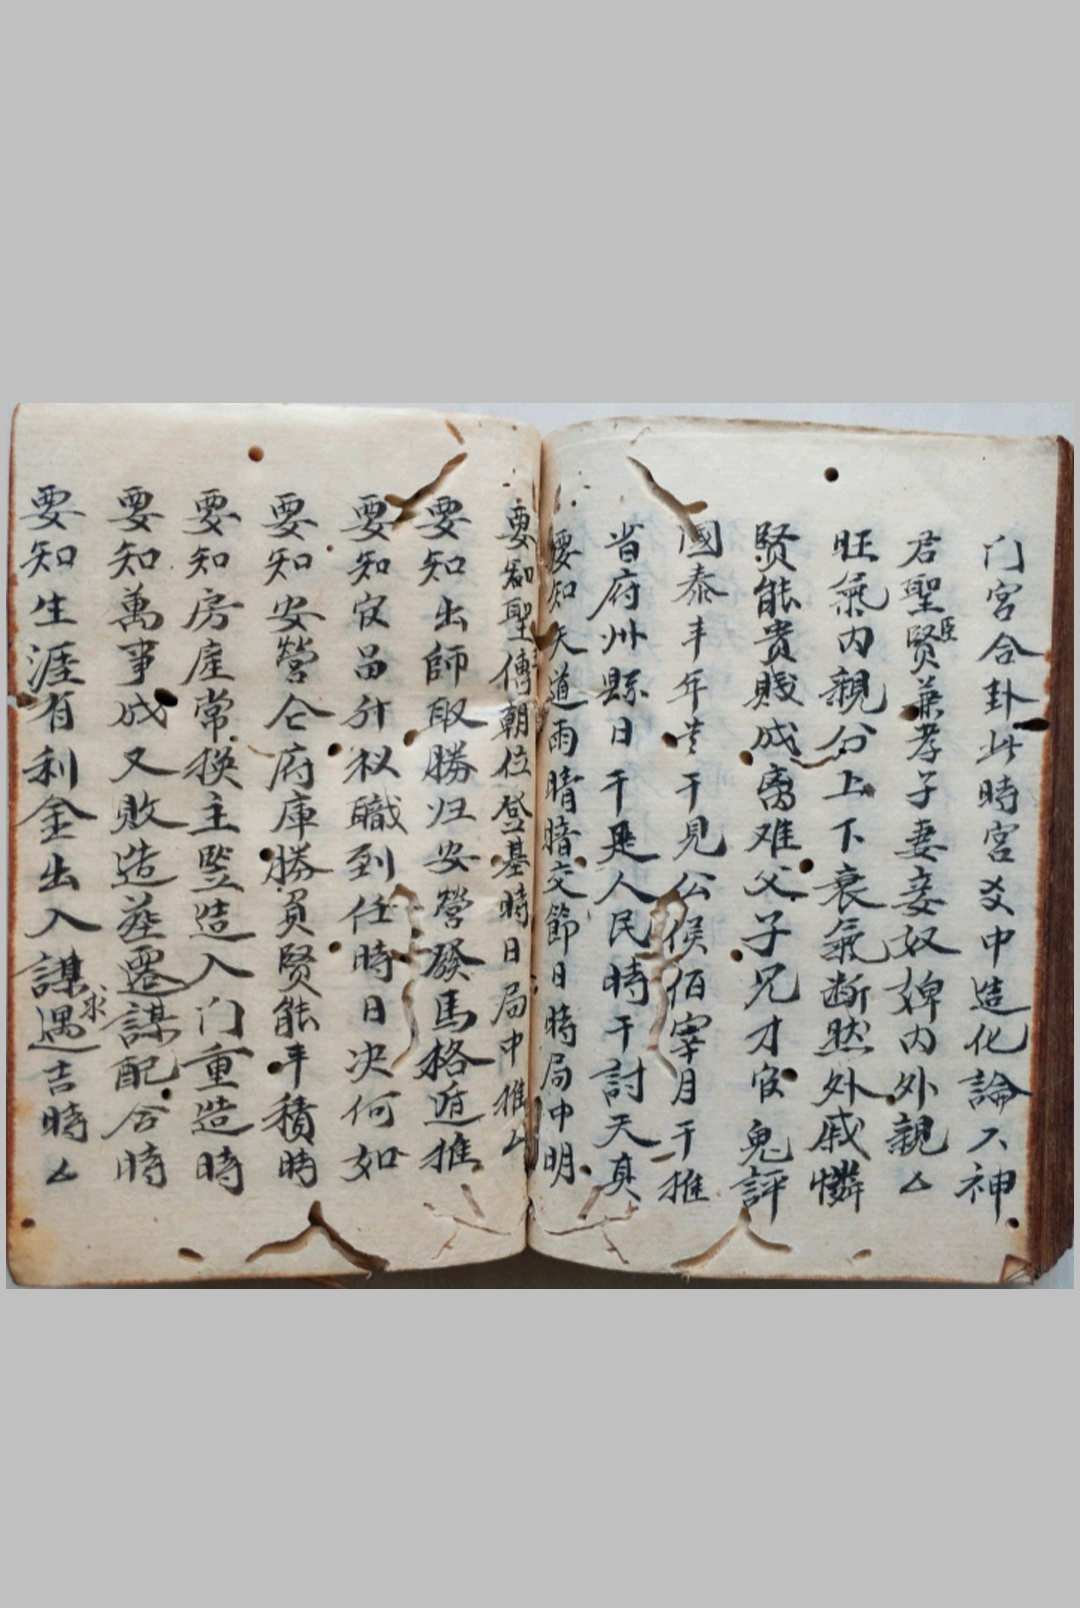 门宮合卦此時宮爻中造化論人神
君聖臣賢兼孝子妻妾奴婢内外親
旺氣内親分上下衰氣断然外戚憐
賢能貴賎成离难父子兄才官鬼評
國泰丰年干見公侯伯宰月干推
省府州縣日干是人民時干討天真
要知天道雨晴暗交節日時局中明
要知聖傳朝位登基時日局中推
要知出師取勝归安營發馬格遁推
要知官品升职到任時日决何如
要知安營仓府庫勝負賢能丰積時
要知房產常换主竪造入门重造時
要知萬事成又敗造葬遷謀配合時
要知生涯有利金出入謀求遇吉時